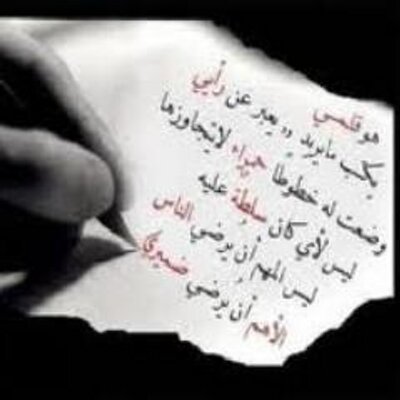 هو قلمي
يكتب ما يريد و يعبر عن رأيي
وضعت له خطوطا حمراء لا يتجاوزها
ليس لأي كان سلطة عليه
ليس المهم أن يرضي الناس
الأهم أن يرضي ضميري